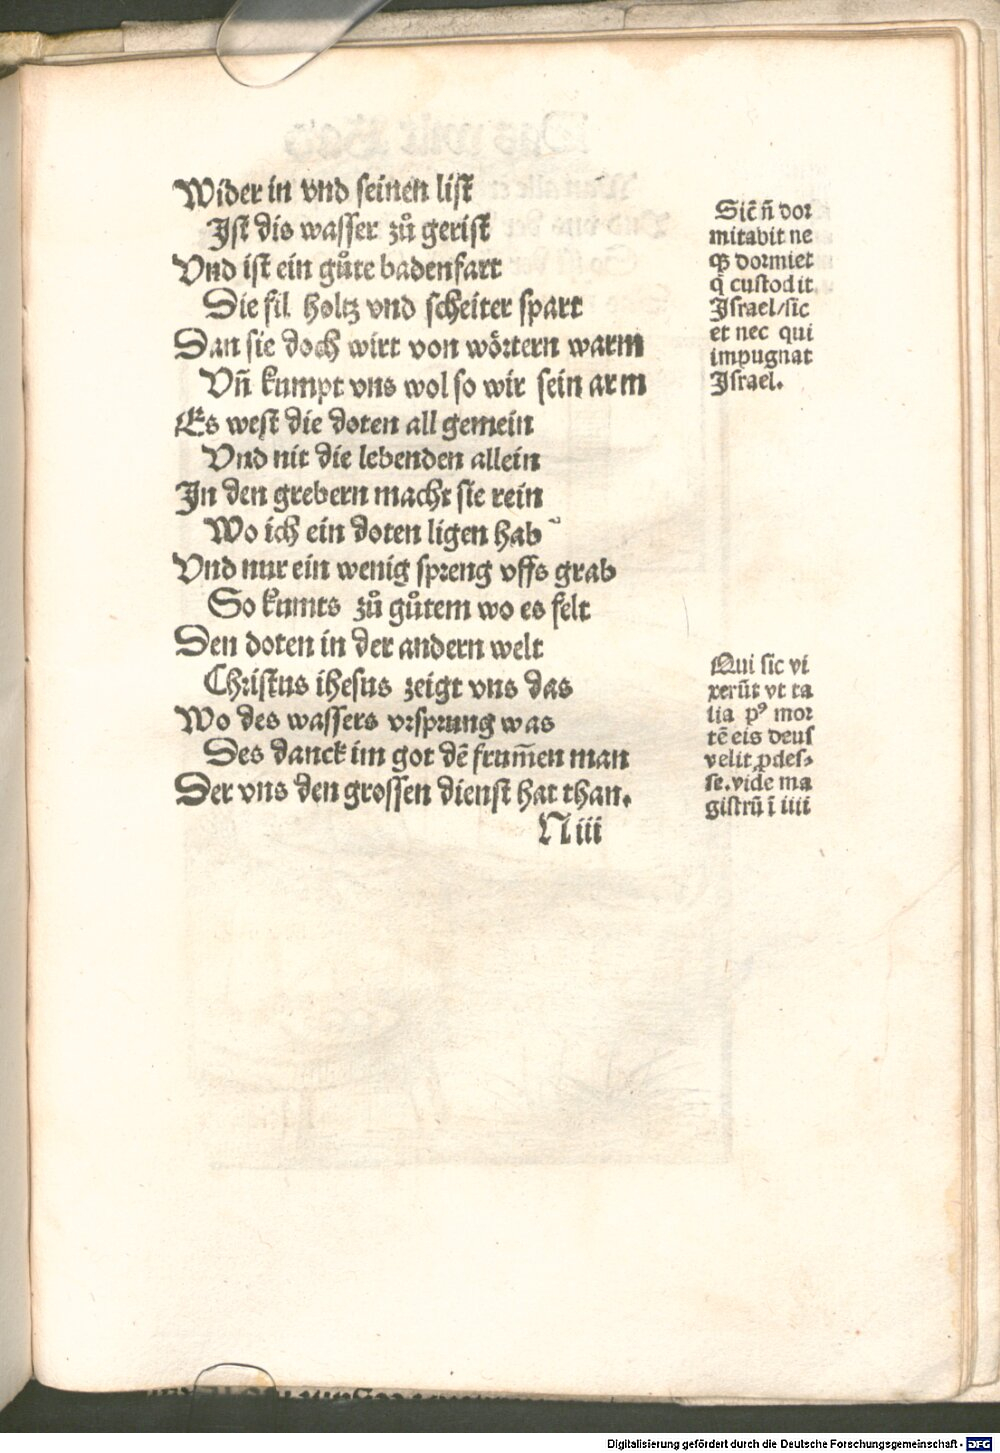 Wider in vnd seinen list
Ist dis wasser zů gerist
Vnd ist ein gůte badenfart
Die fil holtz vnd scheiter spart
Dan sie doch wirt von wörtern warm
Vn̄ kumpt vns wol so wir sein arm
Es west die doten all gemein
Vnd nit die lebenden allein
In den grebern macht sie rein
Wo ich ein doten ligen hab
Vnd nur ein wenig spreng vffs grab
So kumts zů gůtem wo es felt
Den doten in der andern welt
Christus ihesus zeigt vns das
Wo des wassers vrsprung was
Des danck im got dē frum̄en man
Der vns den grossen dienst hat than.
N iii
Sic̄ n̄ dor
mitabit ne
qꝫ dormiet
q̄ custodit
Israel/sic
et nec qui
impugnat
Israel.
Qui sic vi
xerūt vt ta
lia pꝰ mor
tē eis deus
velit ꝓdes⸗
se.vide ma
gistrū ī iiii
Digitalisierung gefördert durch die Deutsche Forschungsgemeinschaft - DFG